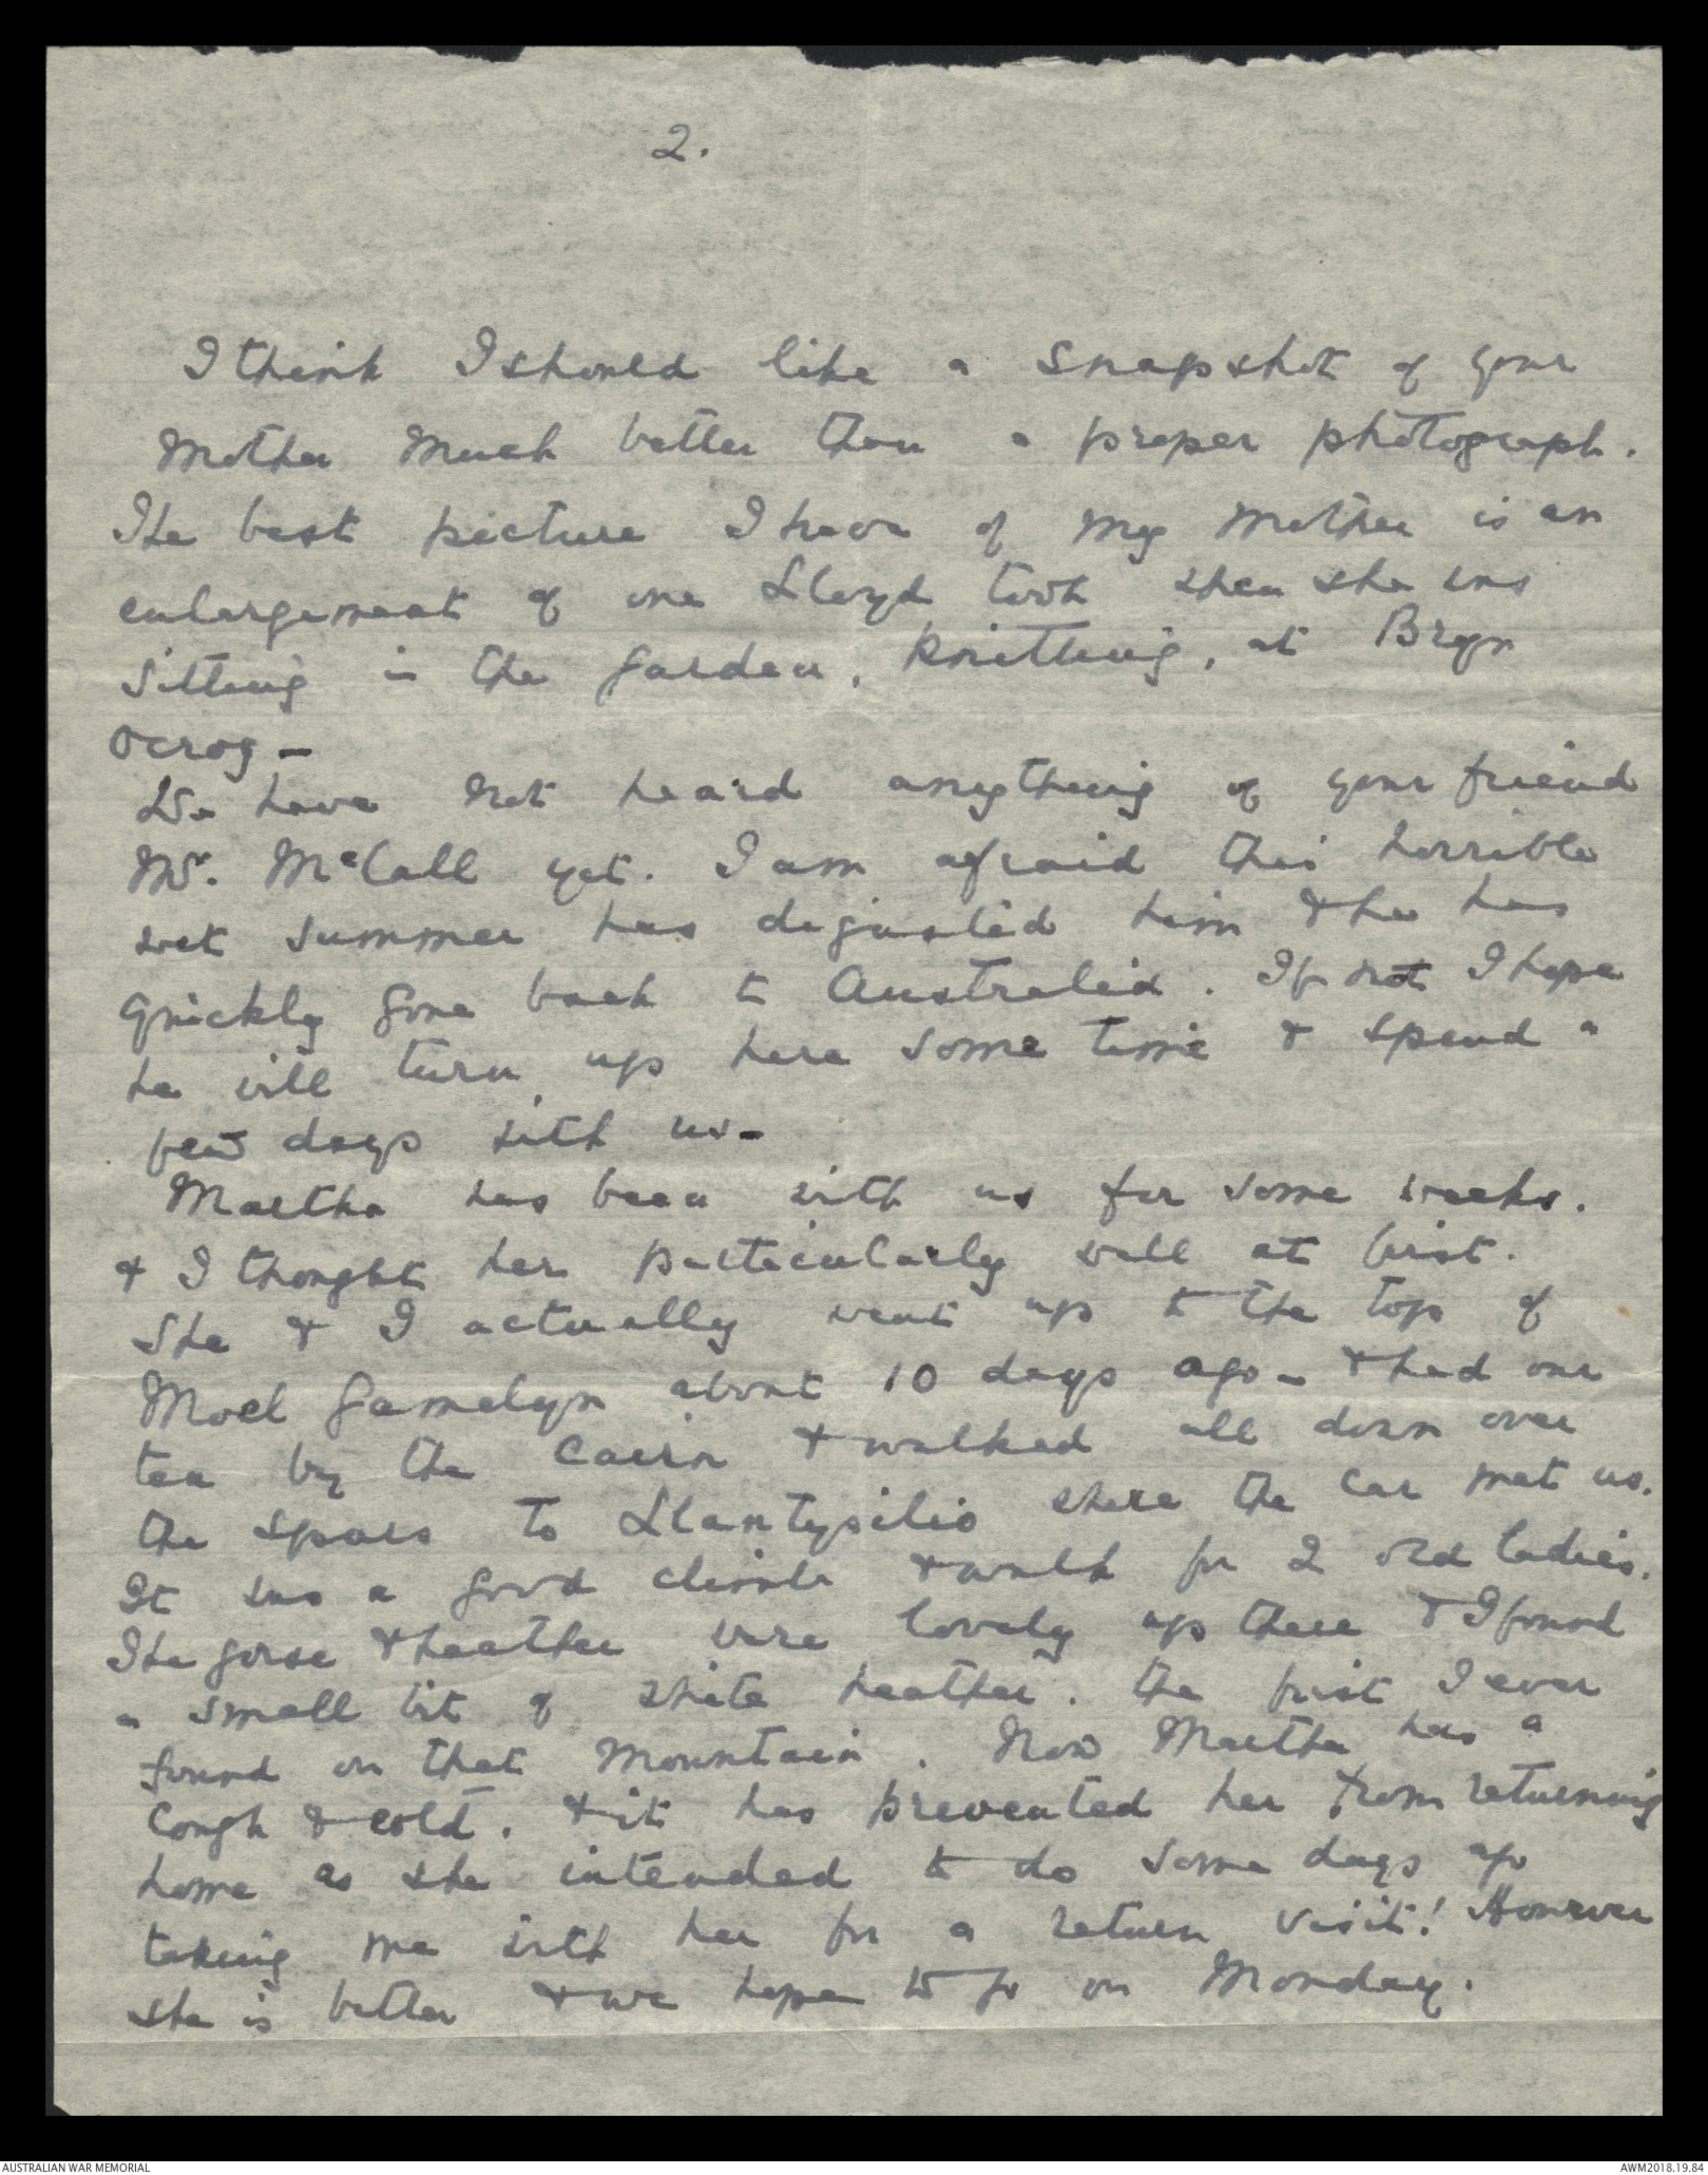 2.
I think I should like a snapshot of your
Mother much better than a proper photograph.
The best picture I have of my Mother is an
enlargement of one Lloyd took when she was
sitting in the garden, knitting, at Bryn
Derog –
We have not heard anything of your friend
Mr. McCall yet. I am afraid this horrible
wet summer has disgusted him & he has
quickly gone back to Australia. If not I hope
he will turn up here some time & spend a
few days with us –
Martha has been with us for some weeks.
& I thought her particularly well at first.
She & I actually went up to the top of
Moel Gamelyn about 10 days ago – & had our
tea by the Cairn & walked all down over
the spurs to Llantysilio where the car met us.
It was a good climb & walk for 2 old ladies.
The gorse & heather were lovely up there & I found
a small bit of white heather. the first I ever
found on that Mountain. Now Martha has a
cough & cold. & it has prevented her from returning
home as she intended to do some days ago
taking me with her for a return visit! However
she is better & we hope to go on Monday.
AUSTRALIAN WAR MEMORIAL
AWM2018.19.84